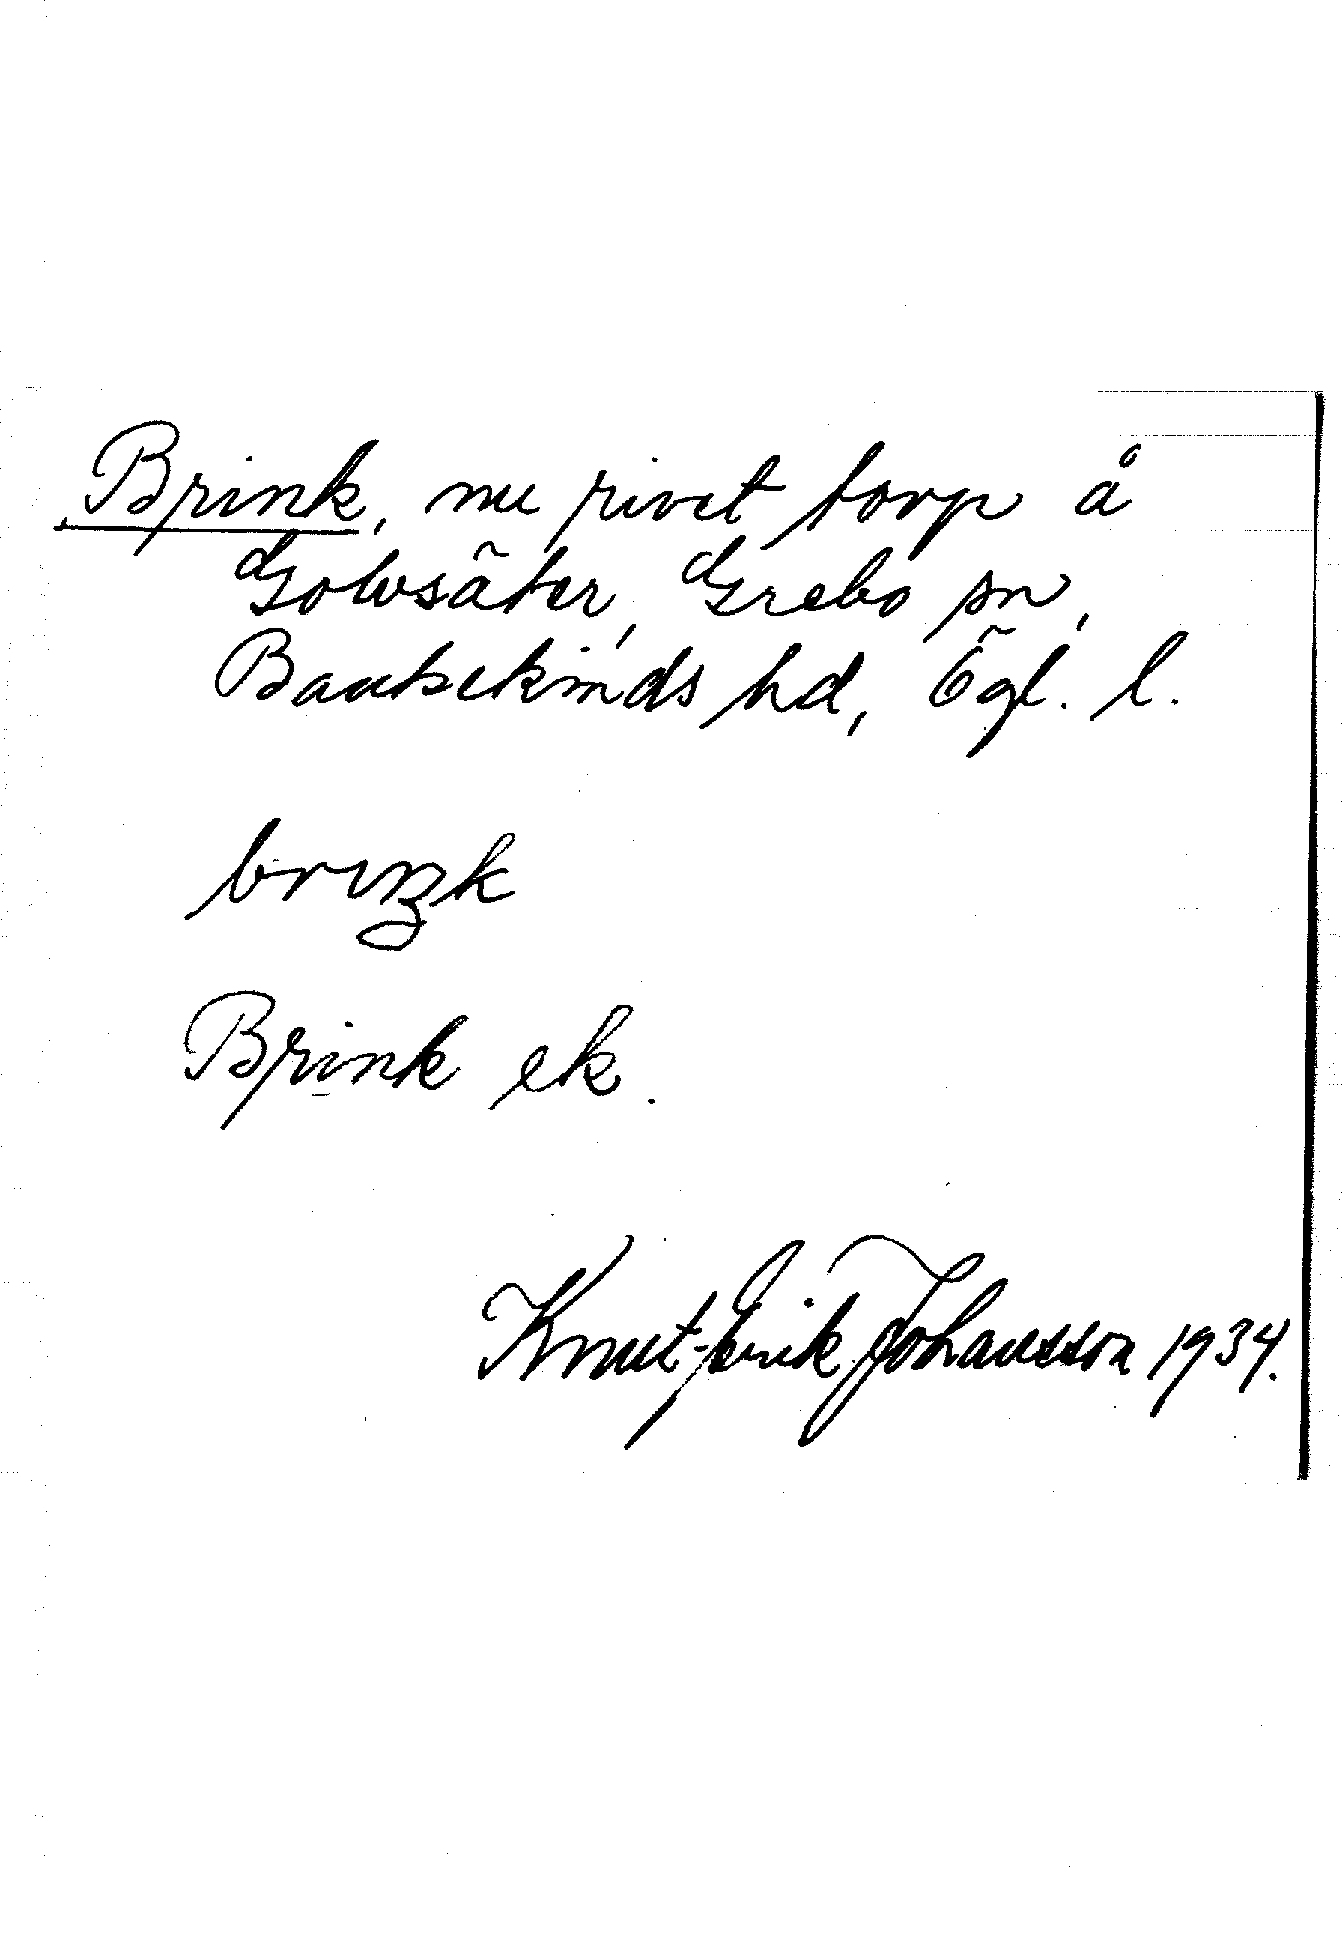 Brink, nu rivet torp å
Golvsäter, Grebo sn,
Bankekinds hd, Ögl. l.
brıŋk
Brink ek.
Knut-Erik Johansson 1934.